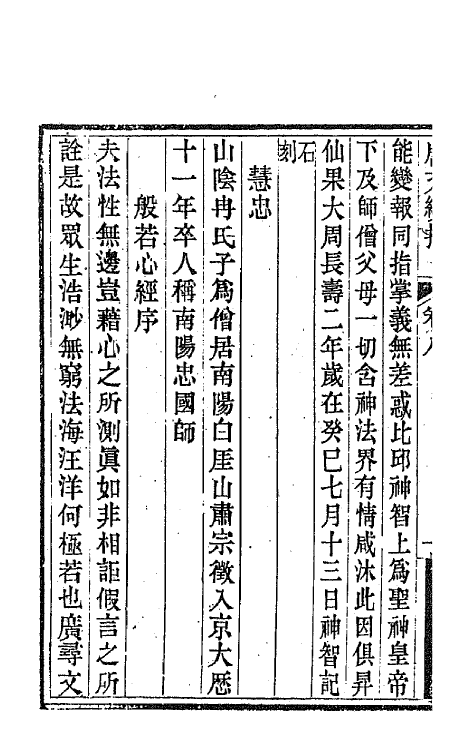 能變報同指掌義無差惑比邱神智上爲聖神皇帝
下及師僧父母一切含神法界有情咸沐此因俱昇
仙果大周長壽二年歲在癸巳七月十三日神智記
石刻
慧忠
山陰冉氏子爲僧居南陽白厓山肅宗徵入京大厯
十一年卒人稱南陽忠國師
般若心經序
夫法性無邊豈藉心之所測眞如非相詎假言之所
詮是故眾生浩渺無窮法海汪洋何極若也廣尋文